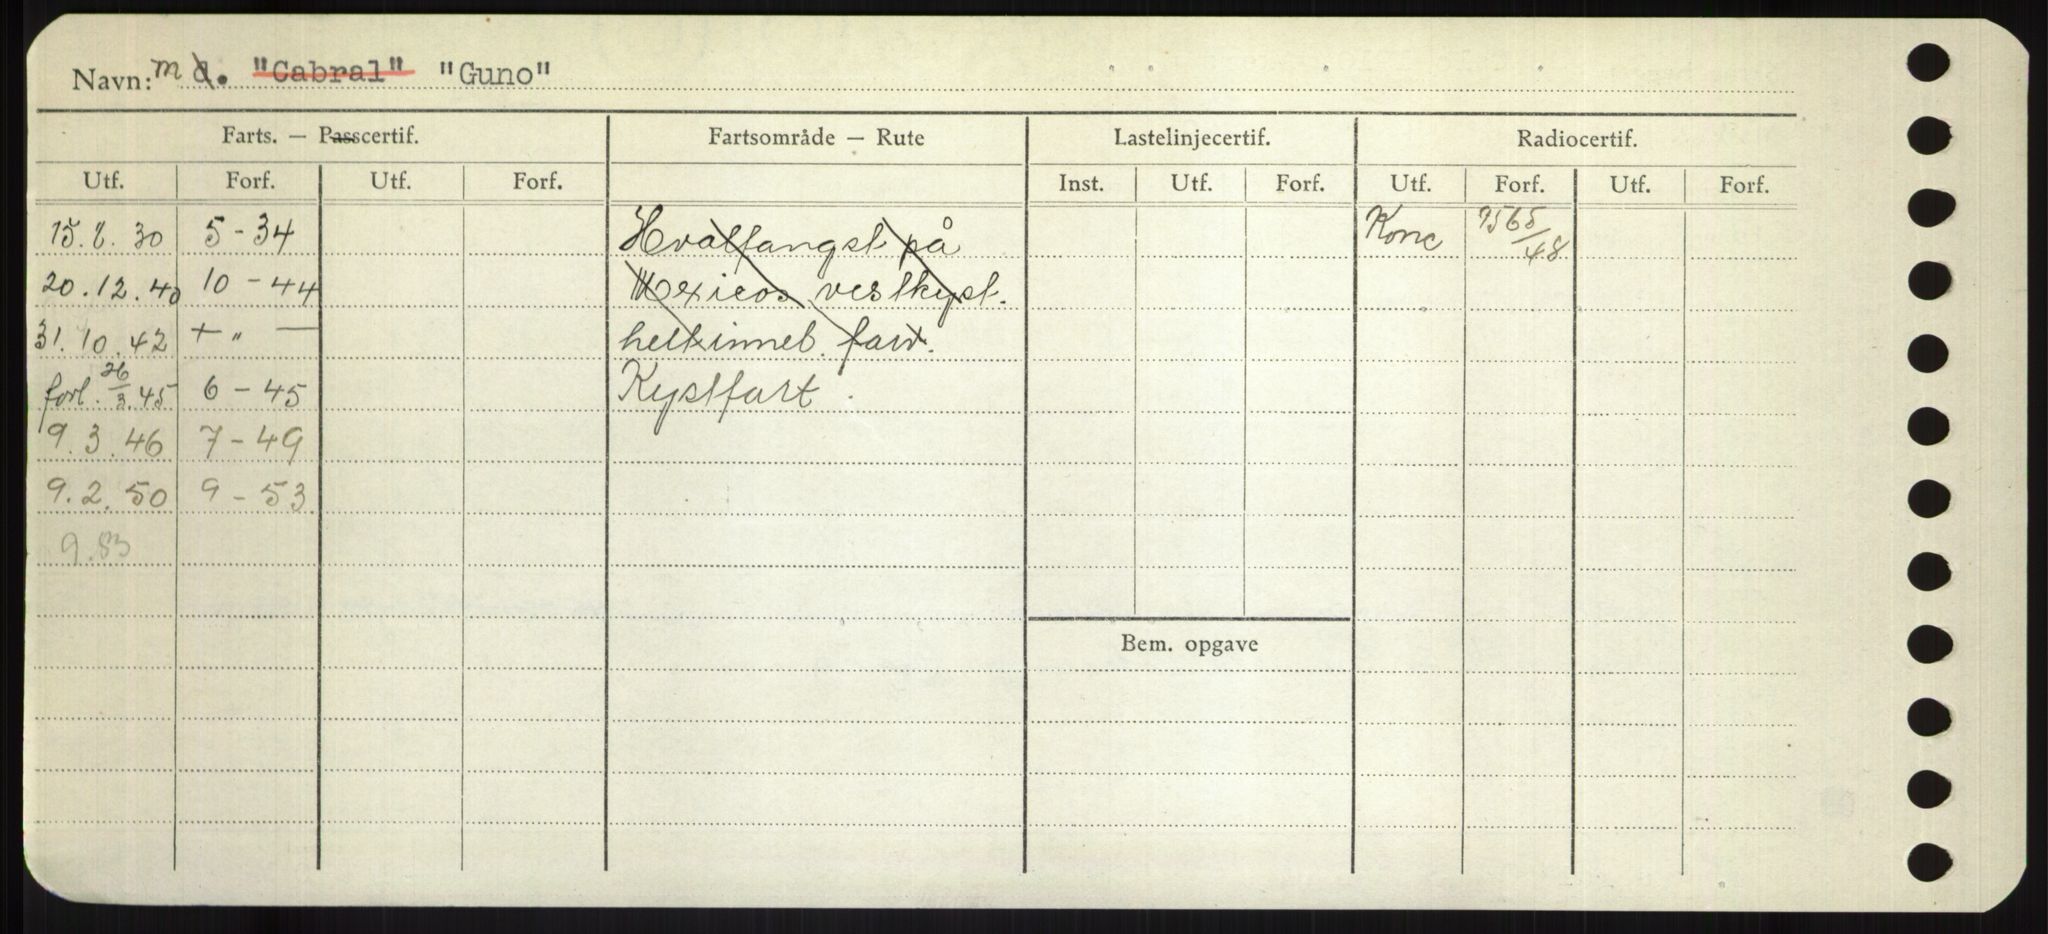 Navn: m d. "Cabral" "Guno"
Farts. — Passcertif. Fartsområde — Rute Lastelinjecertif. Radiocertif.
Utf. Forf. Utf. Forf. Inst. Utf. Forf. Utf. Forf. Utf. Forf.
15.8.30 5-34 Hvalfangst på Konc 9565/48
20.12.40 10-44 Mexicos vestkyst.
31.10.42 + " — helt innel. farv.
forl. 26/3.45 6-45 Kystfart
9.3.46 7-49
9.2.50 9-53
9.53
Bem. opgave